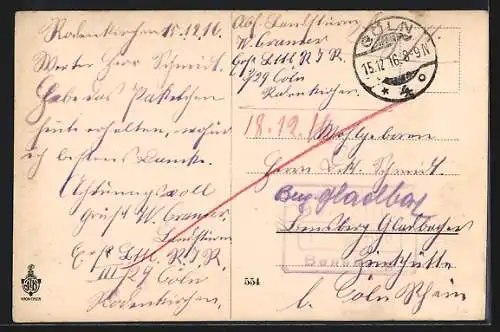 Rodenkirchen 15.12.16.
Werter Herr Schmidt.
Habe das Paketchen
heute erhalten, wofür
ich bestens Danke.
Achtungsvoll
grüßt W. Cramer
Landsturm
Ers. Lstt. R.I.R.
III/29 Cöln
Rodenkirchen.
Abs. Landsturm
W. Cramer
Ers. Lstt R.I.R.
/29 Cöln
Rodenkirchen.
CÖLN
15.12.16.8-9N
* 4
18.12.16
Wohlgeboren
Herrn Schmidt.
Berg Gladbach
Bensberg Gladbacher
b. Cöln Rhein
554